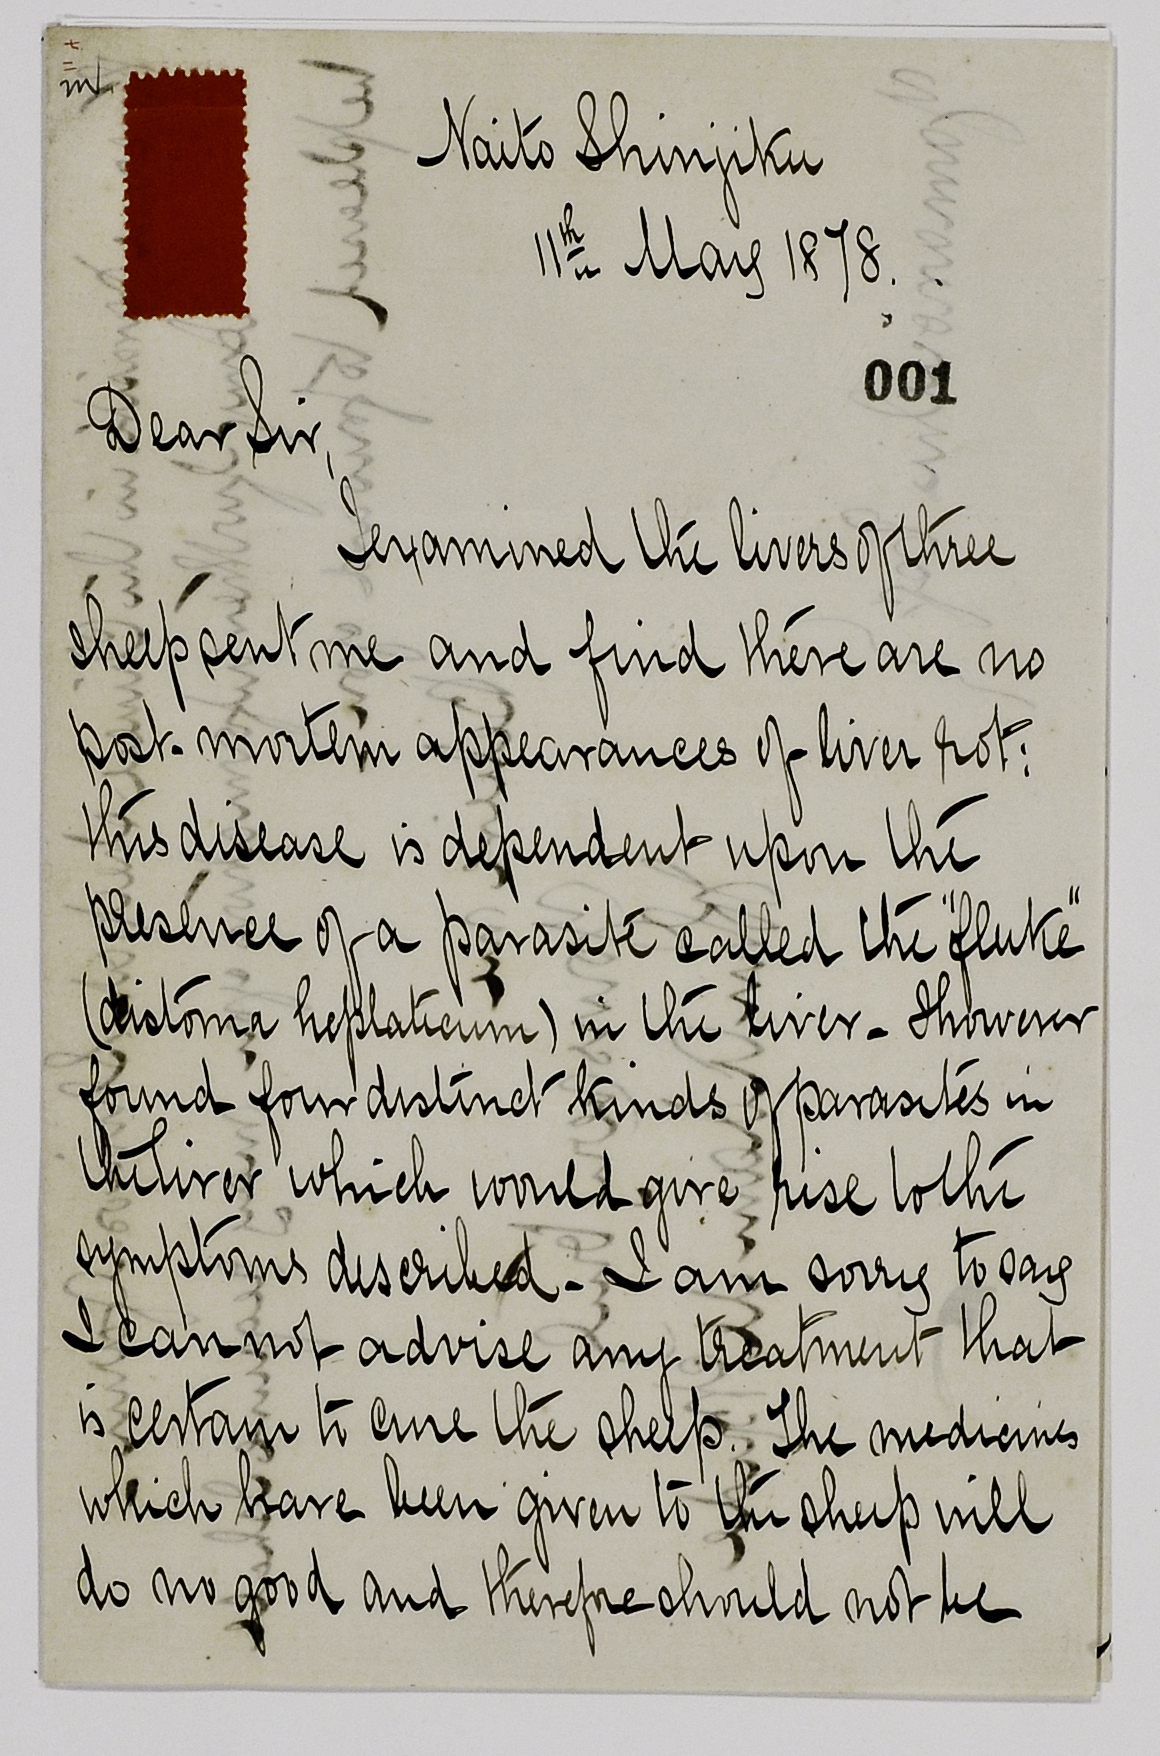 Naito Shinjiku
11th May 1878.
001
Dear Sir,
I examined the livers of three
sheep sent me and find there are no
post-mortem appearances of liver rot:
this disease is dependent upon the
presence of a parasite called the "fluke"
(distoma heplaticum) in the liver - I however
found four distinct kinds of parasites in
the liver which would give rise to the
symptoms described - I am sorry to say
I cannot advise any treatment that
is certain to cure the sheep. The medicines
which have been given to the sheep will
do no good and therefore should not be